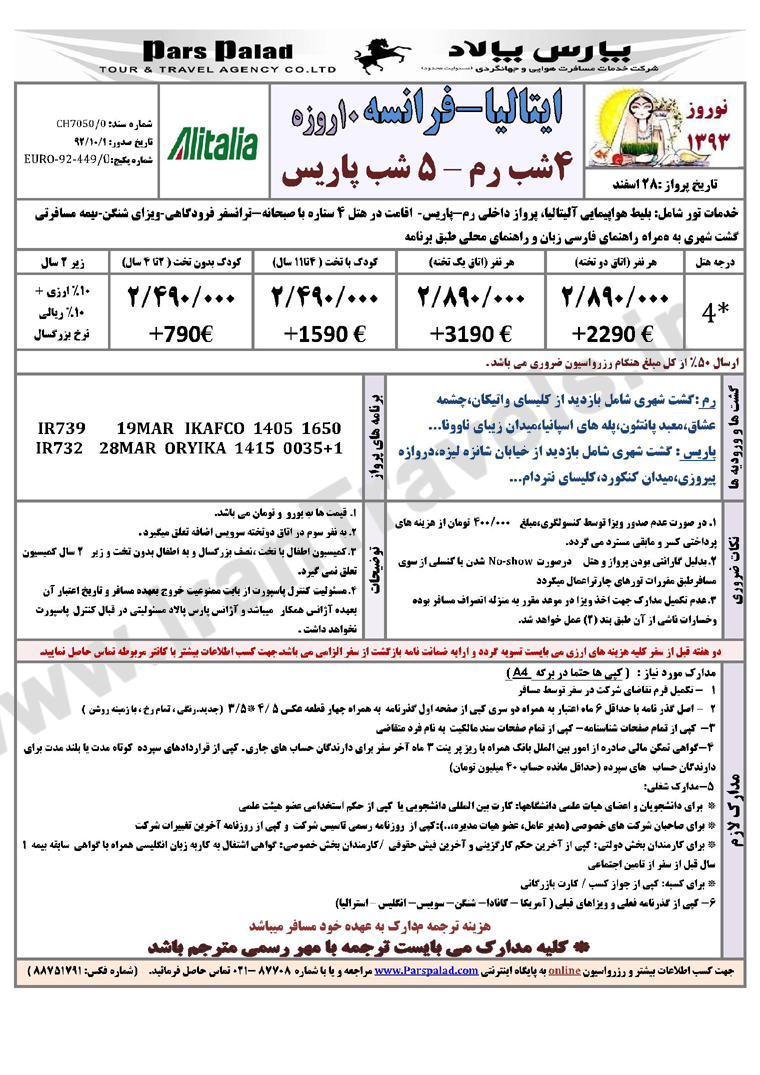 Pars Palad
TOUR & TRAVEL AGENCY CO.LTD
پارس پالاد
شرکت خدمات مسافرت هوایی و جهانگردی (مسئولیت محدود)
نوروز
۱۳۹۳
تاریخ پرواز :۲۸ اسفند
ایتالیا-فرانسه ۱۰روزه
۴شب رم - ۵ شب پاریس
Alitalia
شماره سند: CH7050/0
تاریخ صدور: ۹۲/۱۰/۱
شماره پکیج: EURO-92-449/0
خدمات تور شامل: بلیط هواپیمایی آلیتالیا، پرواز داخلی رم-پاریس- اقامت در هتل ۴ ستاره با صبحانه-ترانسفر فرودگاهی-ویزای شنگن-بیمه مسافرتی
گشت شهری به همراه راهنمای فارسی زبان و راهنمای محلی طبق برنامه
درجه هتل
هر نفر (اتاق دو تخته)
هر نفر (اتاق یک تخته)
کودک با تخت ( ۴تا۱۱ سال)
کودک بدون تخت ( ۲تا ۴ سال)
زیر ۲ سال
4*
۲/۸۹۰/۰۰۰
+2290 €
۲/۸۹۰/۰۰۰
+3190 €
۲/۴۹۰/۰۰۰
+1590 €
۲/۴۹۰/۰۰۰
+790€
۱۰٪ ارزی +
۱۰٪ ریالی
نرخ بزرگسال
ارسال ۵۰٪ از کل مبلغ هنگام رزرواسیون ضروری می باشد .
گشت ها و ورودیه ها
رم :گشت شهری شامل بازدید از کلیسای واتیکان،چشمه
عشاق،معبد پانتئون،پله های اسپانیا،میدان زیبای ناوونا...
پاریس : گشت شهری شامل بازدید از خیابان شانزه لیزه،دروازه
پیروزی،میدان کنکورد،کلیسای نتردام...
برنامه های پرواز
IR739 19MAR IKAFCO 1405 1650
IR732 28MAR ORYIKA 1415 0035+1
نکات ضروری
۱. در صورت عدم صدور ویزا توسط کنسولگری،مبلغ ۴۰۰/۰۰۰ تومان از هزینه های
پرداختی کسر و مابقی مسترد می گردد.
۲.بدلیل گارانتی بودن پرواز و هتل درصورت No-show شدن یا کنسلی از سوی
مسافرطبق مقررات تورهای چارترعمال میگردد
۳.عدم تکمیل مدارک جهت اخذ ویزا در موعد مقرر به منزله انصراف مسافر بوده
وخسارات ناشی از آن طبق بند (۲) عمل خواهد شد.
توضیحات
۱. قیمت ها به یورو و تومان می باشد.
۲. به نفر سوم در اتاق دوتخته سرویس اضافه تعلق میگیرد .
۳.کمیسیون اطفال با تخت،نصف بزرگسال و به اطفال بدون تخت و زیر ۲ سال کمیسیون
تعلق نمی گیرد.
۴.مسئولیت کنترل پاسپورت از بابت ممنوعیت خروج بعهده مسافر و تاریخ اعتبار آن
بعهده آژانس همکار میباشد و آژانس پارس پالاد مسئولیتی در قبال کنترل پاسپورت
نخواهد داشت .
دو هفته قبل از سفر کلیه هزینه های ارزی می بایست تسویه گردد و ارایه ضمانت نامه بازگشت از سفر الزامی می باشد.جهت کسب اطلاعات بیشتر با کانتر مربوطه تماس حاصل نمایید.
مدارک لازم
مدارک مورد نیاز : ( کپی ها حتما در برگه A4 )
۱ - تکمیل فرم تقاضای شرکت در سفر توسط مسافر
۲ - اصل گذر نامه با حداقل ۶ ماه اعتبار به همراه دو سری کپی از صفحه اول گذرنامه به همراه چهار قطعه عکس ۴/۵ *۳/۵ (جدید،رنگی ، تمام رخ ، با زمینه روشن )
۳- کپی از تمام صفحات شناسنامه- کپی از تمام صفحات سند مالکیت به نام فرد متقاضی
۴-گواهی تمکن مالی صادره از امور بین الملل بانک همراه با ریز پرینت ۳ ماه آخر سفر برای دارندگان حساب های جاری. کپی از قراردادهای سپرده کوتاه مدت یا بلند مدت برای
دارندگان حساب های سپرده (حداقل مانده حساب ۴۰ میلیون تومان)
۵-مدارک شغلی:
* برای دانشجویان و اعضای هیات علمی دانشگاهها: کارت بین المللی دانشجویی یا کپی از حکم استخدامی عضو هیئت علمی
* برای صاحبان شرکت های خصوصی (مدیر عامل، عضو هیات مدیره،..):کپی از روزنامه رسمی تاسیس شرکت و کپی از روزنامه آخرین تغییرات شرکت
* برای کارمندان بخش دولتی: کپی از آخرین حکم کارگزینی و آخرین فیش حقوقی /کارمندان بخش خصوصی: گواهی اشتغال به کار به زبان انگلیسی همراه با گواهی سابقه بیمه ۱
سال قبل از سفر از تامین اجتماعی
* برای کسبه: کپی از جواز کسب / کارت بازرگانی
۶- کپی از گذرنامه فعلی و ویزاهای قبلی ( آمریکا – کانادا- شنگن – سوییس- انگلیس – استرالیا)
هزینه ترجمه مدارک به عهده خود مسافر میباشد
* کلیه مدارک می بایست ترجمه با مهر رسمی مترجم باشد
جهت کسب اطلاعات بیشتر و رزرواسیون online به پایگاه اینترنتی www.Parspalad.com مراجعه و یا با شماره ۸۷۷۰۸ -۰۲۱ تماس حاصل فرمائید. (شماره فکس: ۸۸۷۵۱۷۹۱ )
www.IranTravels.ir